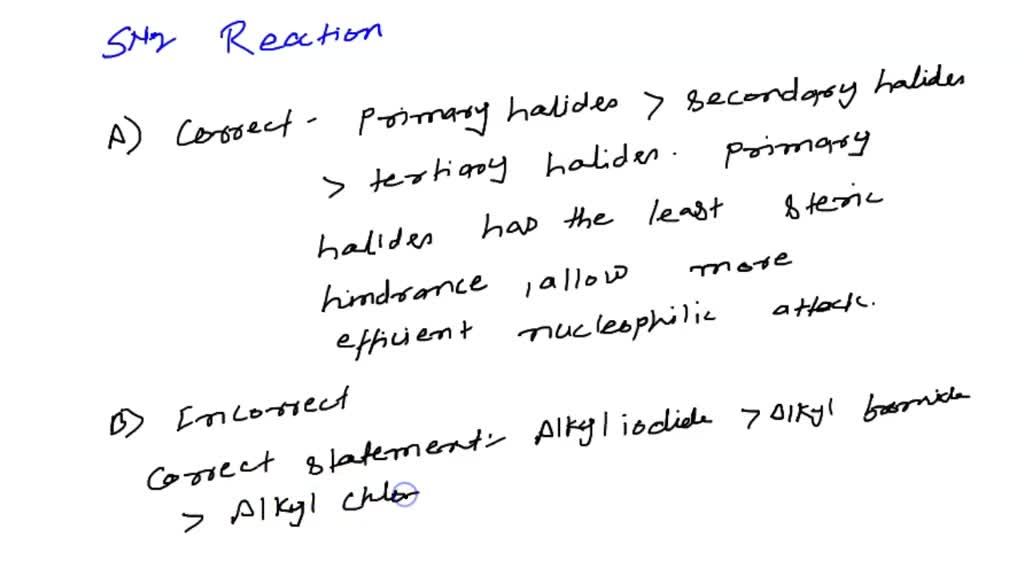 SN2 Reaction
A) Correct - Primary halides > secondary halides
> tertiary halides. primary
halides has the least steric
hindrance, allow more
efficient nucleophilic attack.
B) Incorrect
Correct statement:- Alkyl iodide > Alkyl bromide
> Alkyl chlor